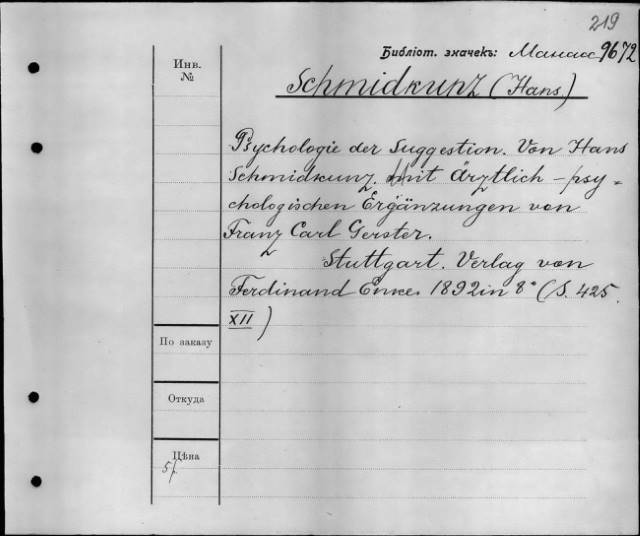 219
Библіот. значекъ: Манасс 9672
Инв.
№
Schmidkunz (Hans)
Psychologie der Suggestion. Von Hans
Schmidkunz. Mit ärztlich-psy=
chologischen Ergänzungen von
Franz Carl Gerster.
Stuttgart. Verlag von
Ferdinand Enke. 1892 in 8° (S. 425
XII)
По заказу
Откуда
Цѣна